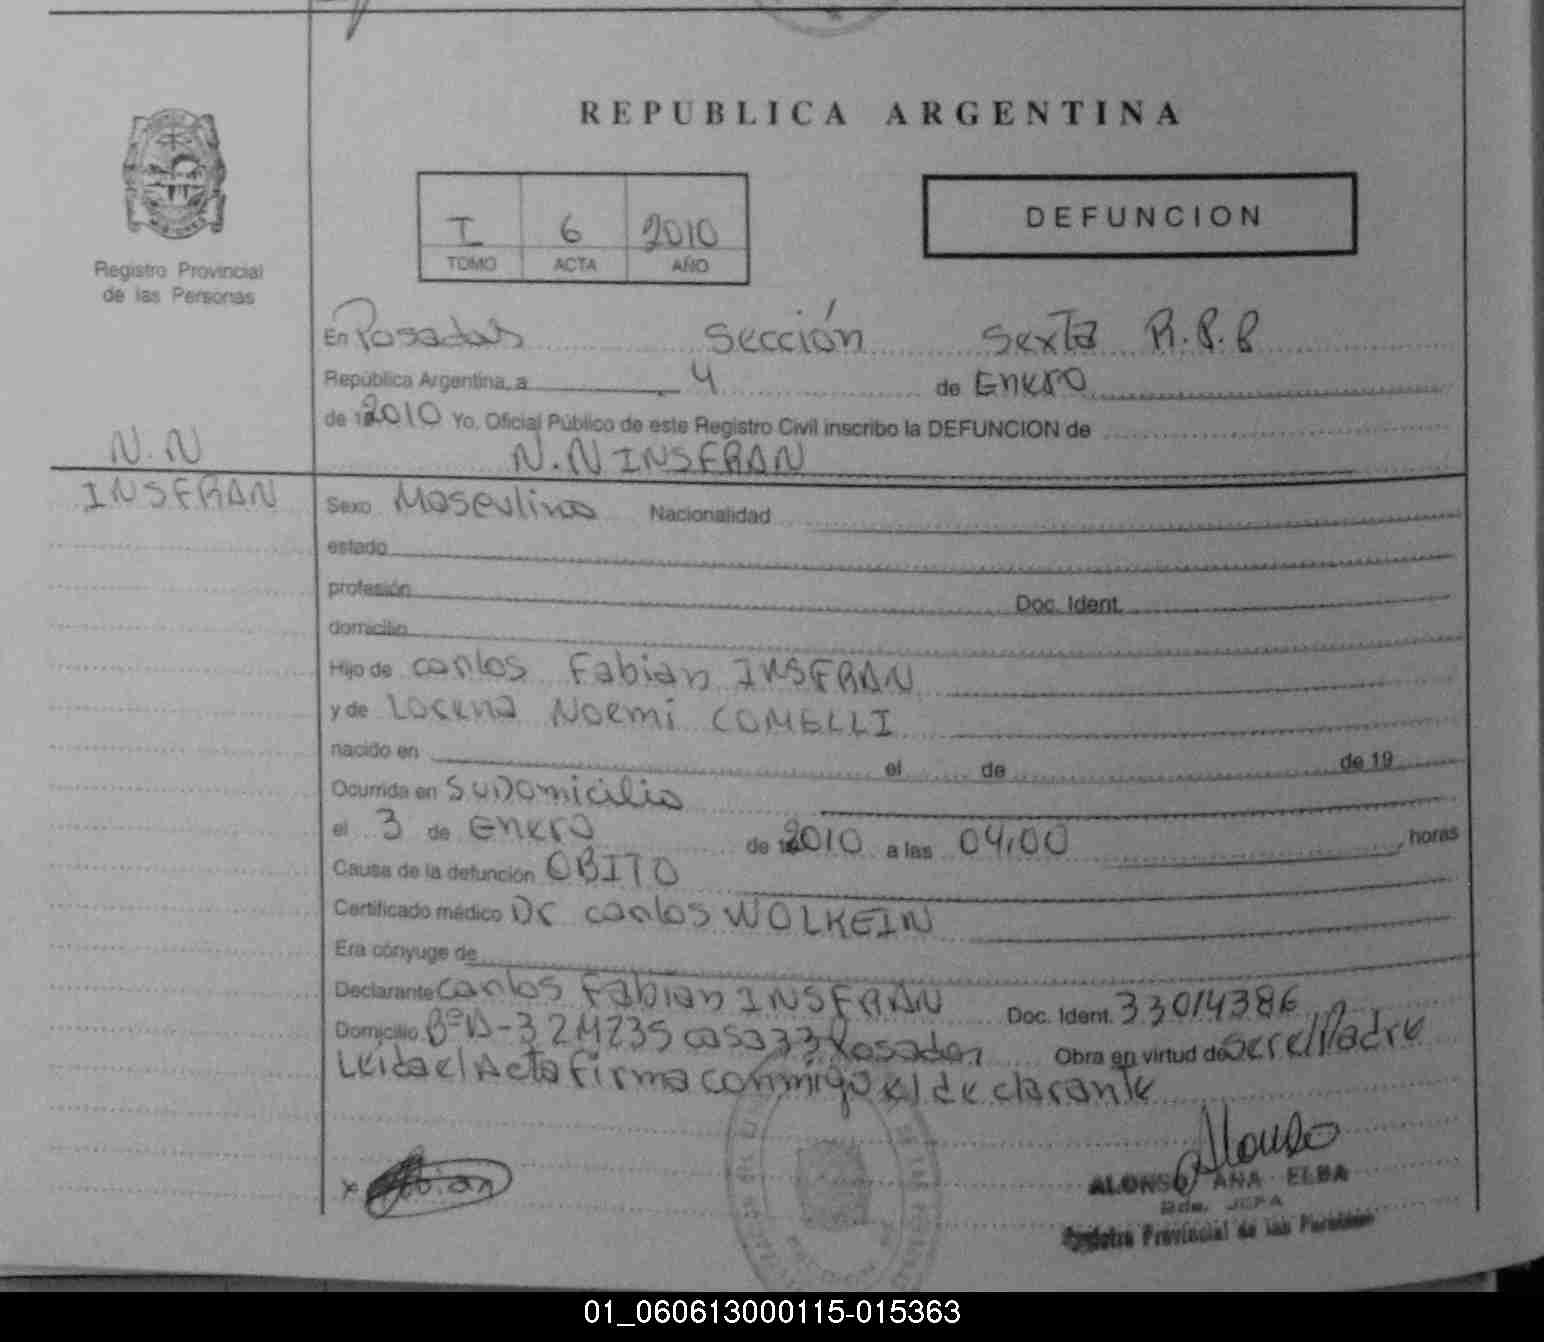 REPUBLICA ARGENTINA
Registro Provincial
de las Personas
I 6 2010
TOMO ACTA AÑO
DEFUNCION
En Posadas Sección Sexta R.P.P
República Argentina, a 4 de Enero
de 2010 Yo, Oficial Público de este Registro Civil inscribo la DEFUNCION de
N.N INSFRAN
N.N
INSFRAN
Sexo Masculino Nacionalidad
estado
profesión Doc. Ident.
domicilio
Hijo de Carlos Fabian INSFRAN
y de Lorena Noemi COMELLI
nacido en el de de 19
Ocurrida en su Domicilio
el 3 de Enero de 2010 a las 04,00 horas
Causa de la defunción OBITO
Certificado médico Dr Carlos WOLKEIN
Era cónyuge de
Declarante Carlos Fabian INSFRAN Doc. Ident. 33014386
Domicilio Bº A-3 2 MZ35 casa 33 Posadas Obra en virtud de Ser el Padre
Leida el Acta firma conmigo el declarante
x
Alonso
ALONSO ANA ELBA
Registro Provincial de las Personas
01_060613000115-015363